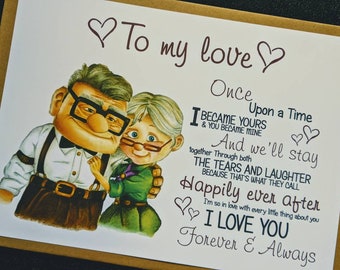 To my love
Once
Upon a Time
I BECAME YOURS
& YOU BECAME MINE
And we'll stay
together through both
THE TEARS AND LAUGHTER
BECAUSE THAT'S WHAT THEY CALL
Happily ever after
I'm so in love with every little thing about you
I LOVE YOU
Forever & Always